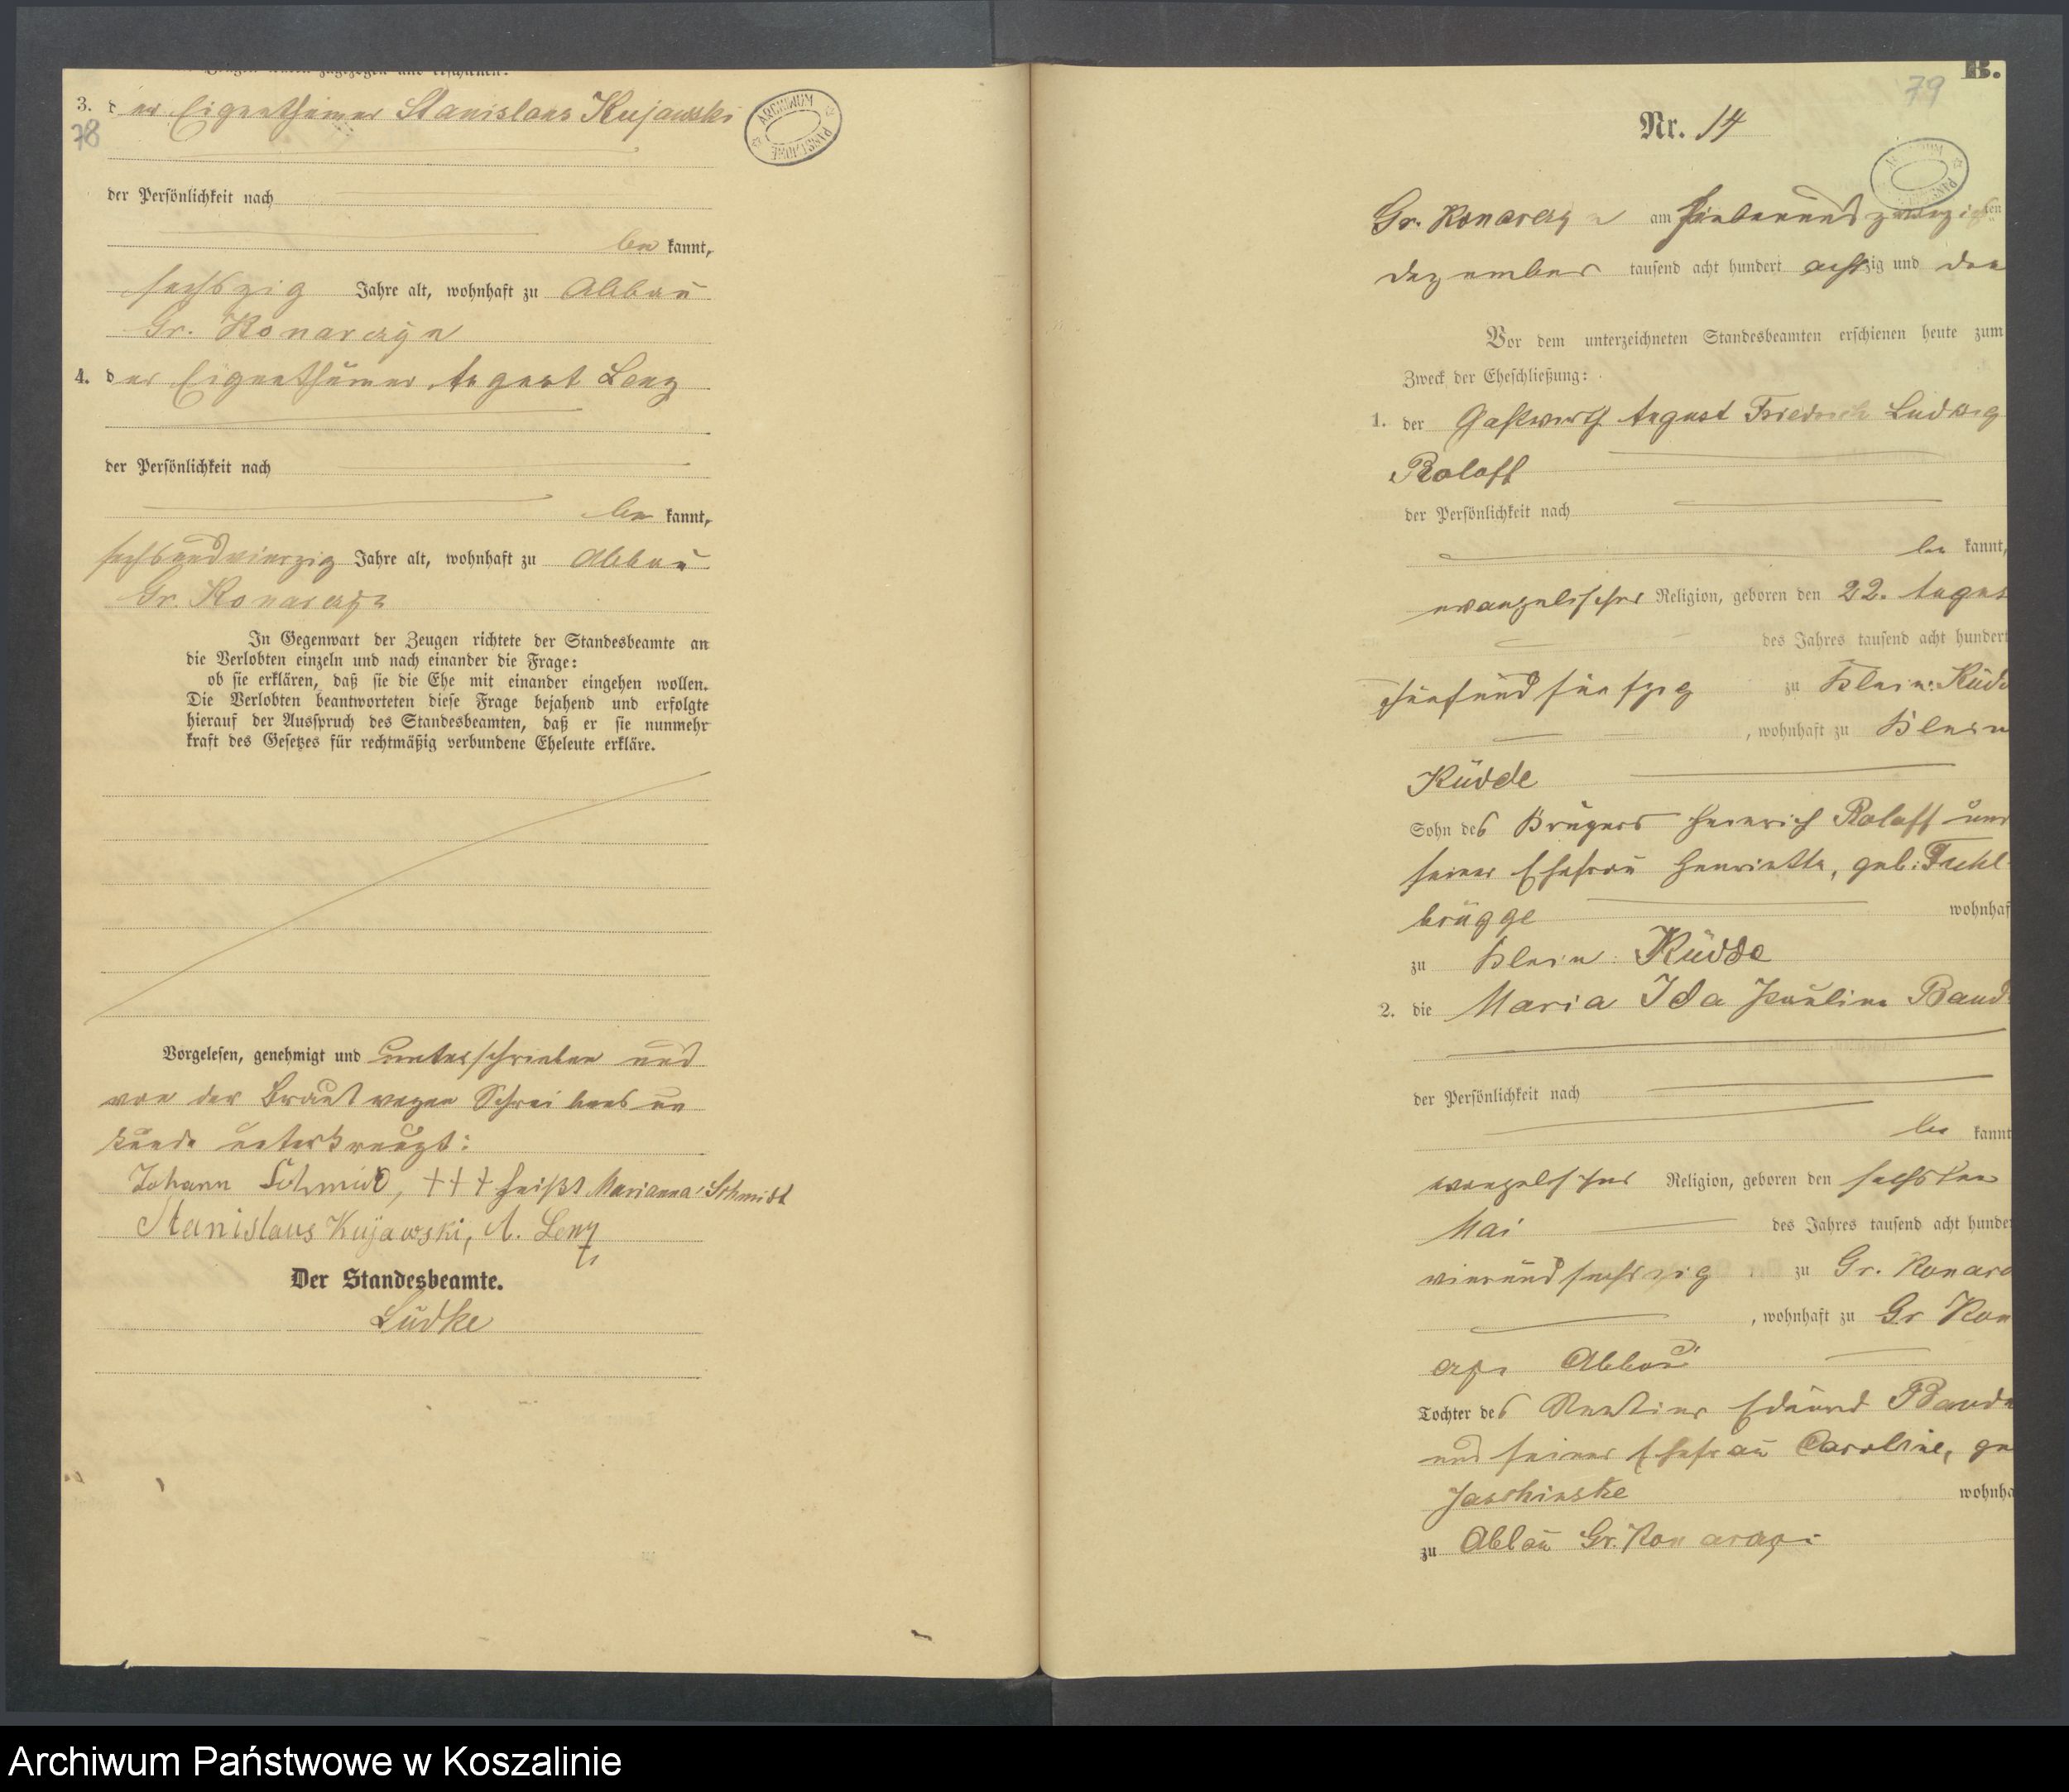 3. der Eigenthümer Stanislaus Kujawski
78
ARCHIWUM PAŃSTWOWE
der Persönlichkeit nach
be kannt,
sechszig Jahre alt, wohnhaft zu Abbau
Gr. Konarczyn
4. der Eigenthümer August Lenz
der Persönlichkeit nach
be kannt,
sechsundvierzig Jahre alt, wohnhaft zu Abbau
Gr. Konarczyn
In Gegenwart der Zeugen richtete der Standesbeamte an
die Verlobten einzeln und nach einander die Frage:
ob sie erklären, daß sie die Ehe mit einander eingehen wollen.
Die Verlobten beantworteten diese Frage bejahend und erfolgte
hierauf der Ausspruch des Standesbeamten, daß er sie nunmehr
kraft des Gesetzes für rechtmäßig verbundene Eheleute erkläre.
Vorgelesen, genehmigt und unterschrieben und
von der Braut wegen Schreibens un
kunde unterkreuzt:
Johann Schmidt, +++ heißt Marianna Schmidt
Stanislaus Kujawski, A. Lenz
Der Standesbeamte.
Lüdke
B.
79
Nr. 14
Gr. Konarczyn am siebenundzwanzigsten
Dezember tausend acht hundert achtzig und drei
Vor dem unterzeichneten Standesbeamten erschienen heute zum
Zweck der Eheschließung:
1. der Gastwirth August Friedrich Ludwig
Raloff
der Persönlichkeit nach
be kannt,
evangelischer Religion, geboren den 22. Augus
des Jahres tausend acht hundert
fünfundfünfzig zu Klein Küdd
, wohnhaft zu Klein
Küdde
Sohn des Krügers Heinrich Raloff und
seiner Ehefrau Henriette, geb.
brügge wohnhaf
zu Klein Küdde
2. die Maria Ida Pauline Band
der Persönlichkeit nach
be kannt
evangelischer Religion, geboren den sechsten
Mai des Jahres tausend acht hunder
vierundsechszig zu Gr. Konarc
, wohnhaft zu Gr Kon
Abbau
Tochter des Rentier Eduard
und seiner Ehefrau Caroline, ge
Jaschinske wohnha
zu Abbau Gr. Konarczyn
Archiwum Państwowe w Koszalinie